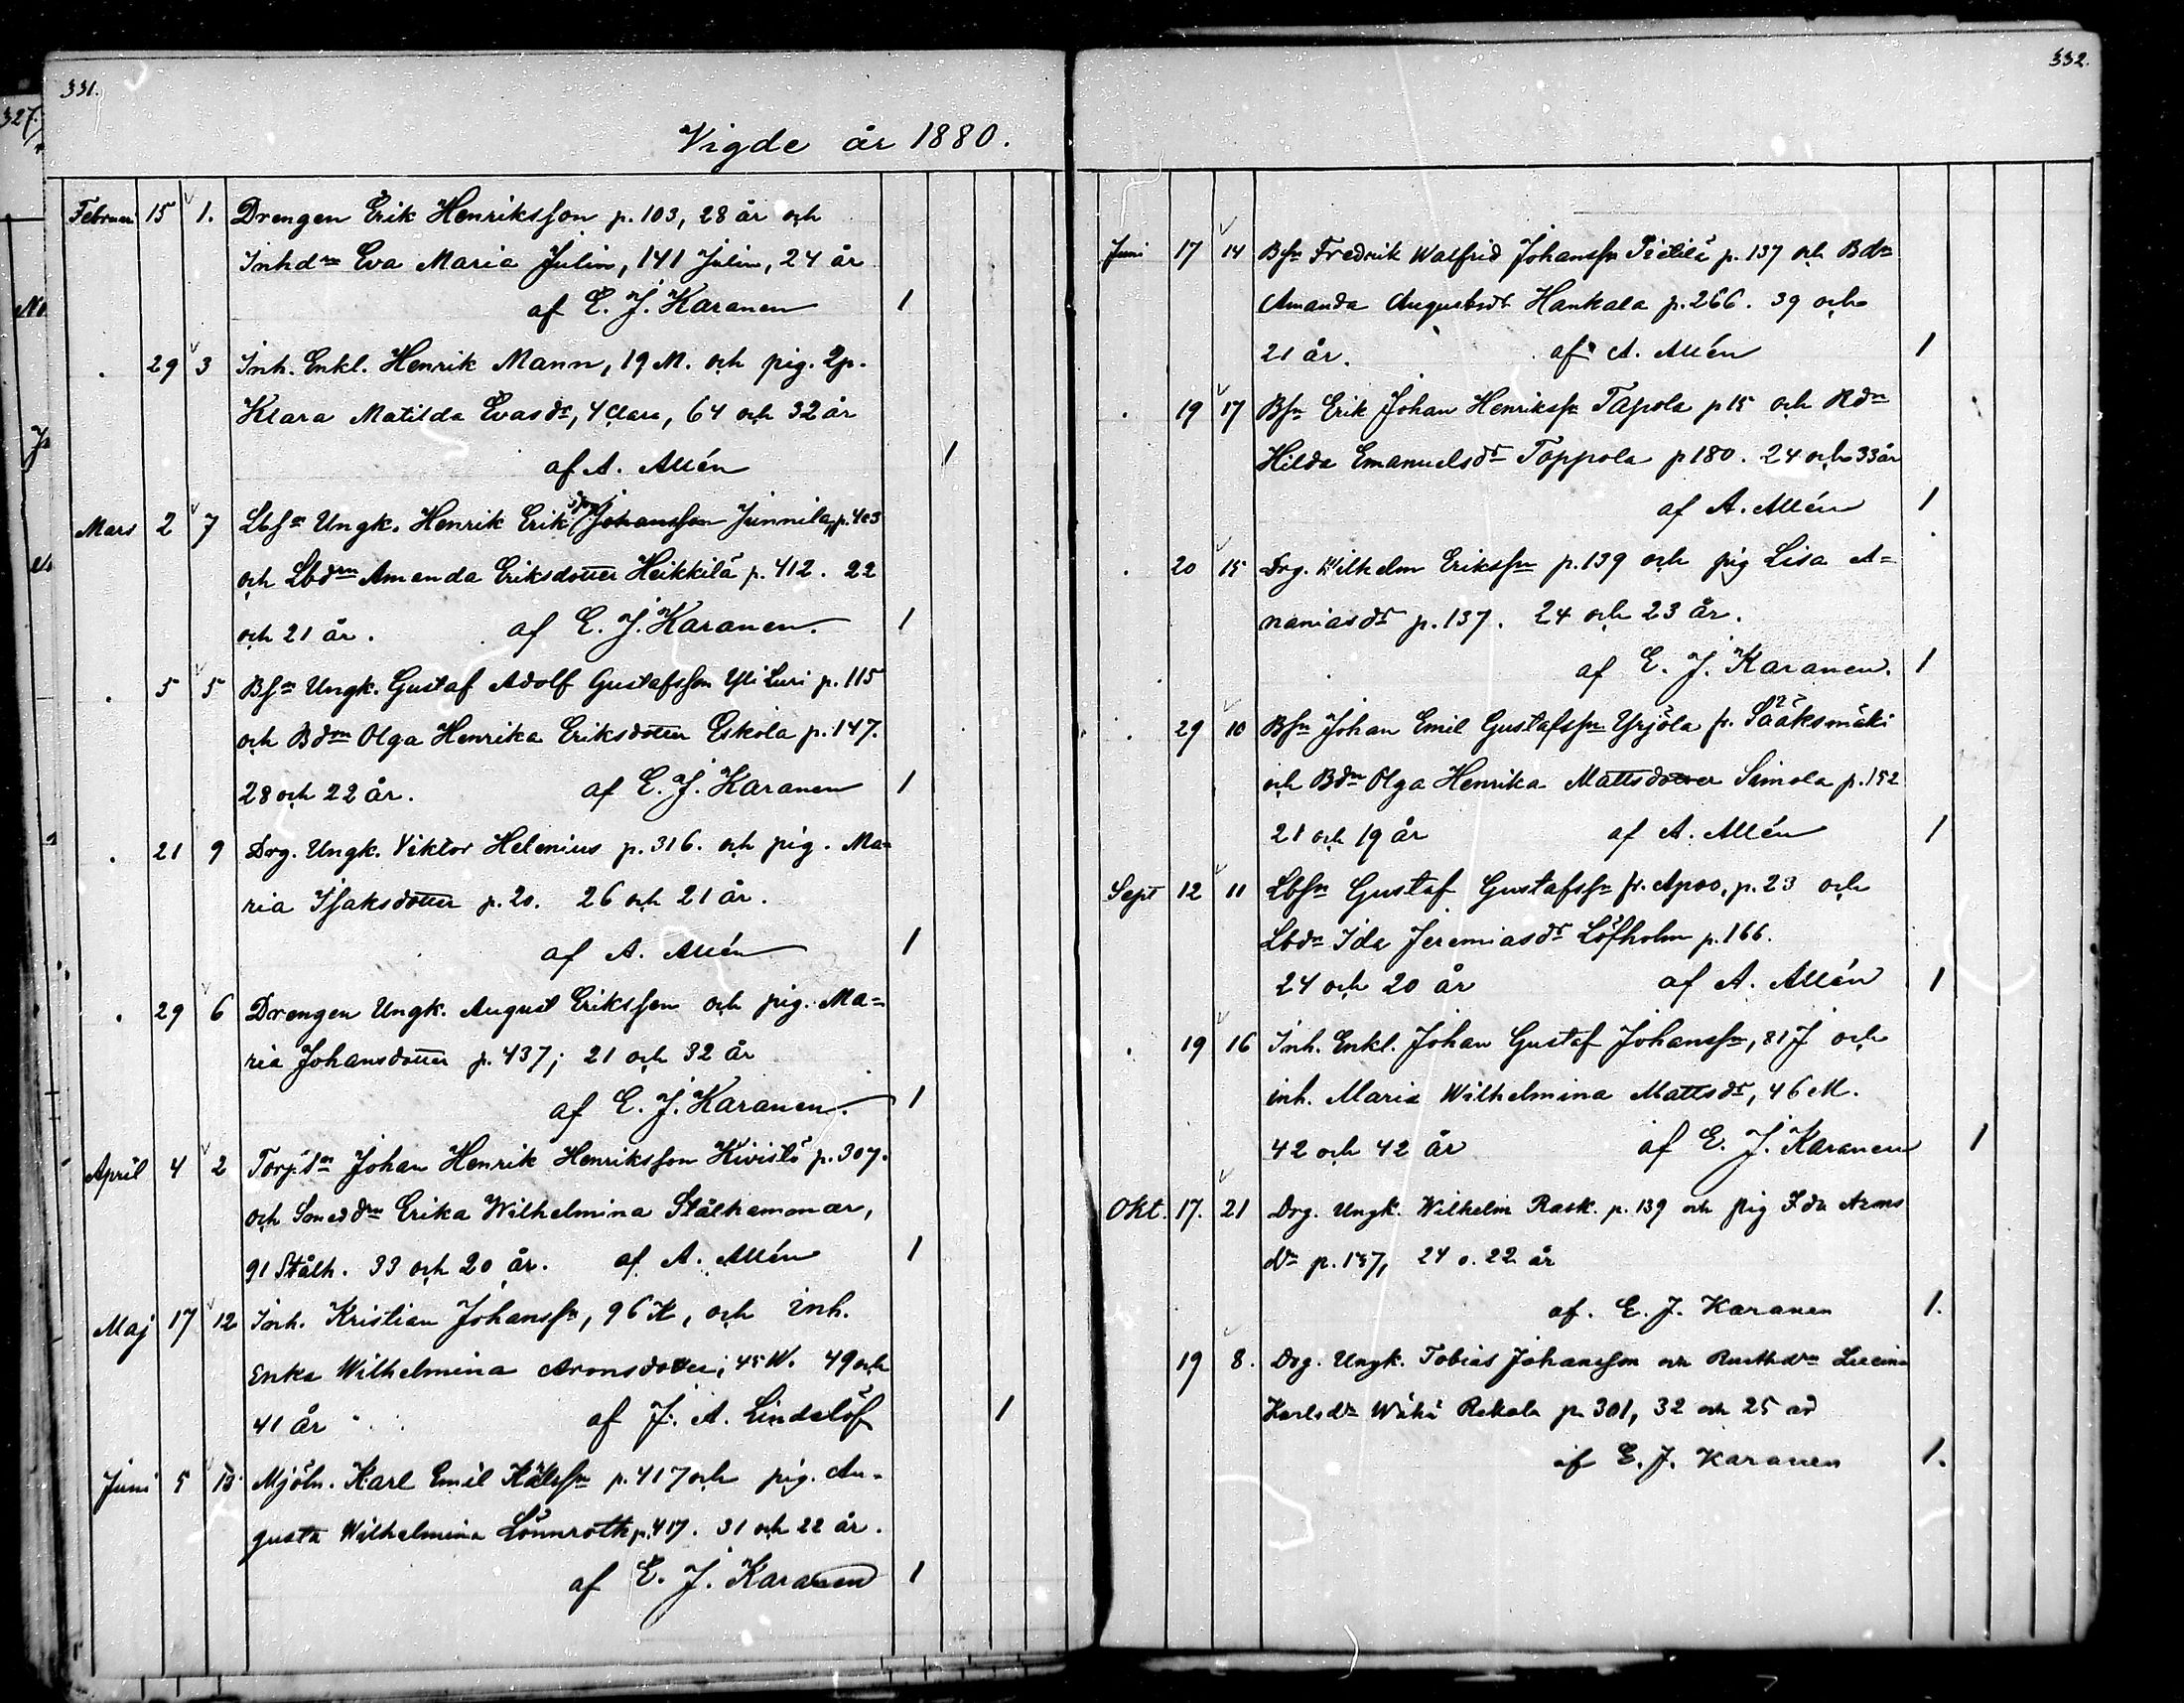 331.
327.
Vigde år 1880.
Februari 15 1. Drengen Erik Henriksson p. 103, 28 år och
Inhdn Eva Maria Julin, 141 Julin, 24 år
af E. J. Karanen 1
. 29 3 Inh. Enkl. Henrik Mann, 19 M. och pig. 2p.
Klara Matilda Evasdr, 4 Clara, 64 och 32 år
af A. Allén 1
Mars 2 7 Lbsn Ungk. Henrik Erik Johansson Junnila, p. 403
och Lbdrn Amanda Eriksdotter Heikkilä p. 412. 22
och 21 år. af E. J. Karanen. 1
. 5 5 Bsn Ungk. Gustaf Adolf Gustafsson Yli Luri p. 115
och Bdrn Olga Henrika Eriksdotter Eskola p. 147.
28 och 22 år. af E. J. Karanen 1
. 21 9 Drg. Ungk. Viktor Helenius p. 316. och pig. Ma=
ria Isaksdotter p. 20. 26 och 21 år.
af A. Allén 1
. 29 6 Drengen Ungk. August Eriksson och pig. Ma=
ria Johansdotter p. 437; 21 och 32 år
af E. J. Karanen. 1
April 4 2 Torpsn Johan Henrik Henriksson Kivistö p. 307.
och Smeddrn Erika Wilhelmina Stålhammar,
91 Stålh. 33 och 20 år. af A. Allén 1
Maj 17 12 Inh. Kristian Johanssn, 96 K, och inh.
Enka Wilhelmina Aronsdotter; 45 W. 49 och
41 år af J. A. Lindelöf 1
Juni 5 13 Mjöln. Karl Emil Karlssn p. 417 och pig. Au=
gusta Wilhelmina Lönnroth p. 417. 31 och 22 år.
af E. J. Karanen 1
332.
Juni 17 14 Bsn Fredrik Walfrid Johanssn p. 137 och Bdn
Amanda Augustsdr Hankala p. 266. 39 och
21 år. af A. Allén 1
. 19 17 Bsn Erik Johan Henrikssn Tapola p 15 och Rdn
Hilda Emanuelsdr Toppola p 180. 24 och 33 år
af A. Allén 1
. 20 15 Drg. Wilhelm Erikssn p. 139 och pig Lisa A=
naniasdr p. 137. 24 och 23 år.
af E. J. Karanen. 1
. 29 10 Bsn Johan Emil Gustafssn Yrjölä fr. Sääksmäki
och Bdn Olga Henrika Mattsdotter Simola p. 152
21 och 19 år af A. Allén 1
Sept 12 11 Lbsn Gustaf Gustafssn fr. Apoo, p. 23 och
Lbdn Ida Jeremiasdr Löfholm p. 166.
24 och 20 år af A. Allén 1
. 19 16 Inh. Enkl. Johan Gustaf Johanssn, 81 J och
inh. Maria Wilhelmina Mattsdr, 46 M.
42 och 42 år af E. J. Karanen 1
Okt. 17. 21 Drg. Ungk. Wilhelm Rask. p. 139 och pig Ida Arons
dr p. 24 o. 22 år
af. E. J. Karanen 1.
19 8. Drg. Ungk. Tobias Johansson och
Karlsdr Wähä Rekola p. 301, 32 och 25 år
af E. J. Karanen 1.